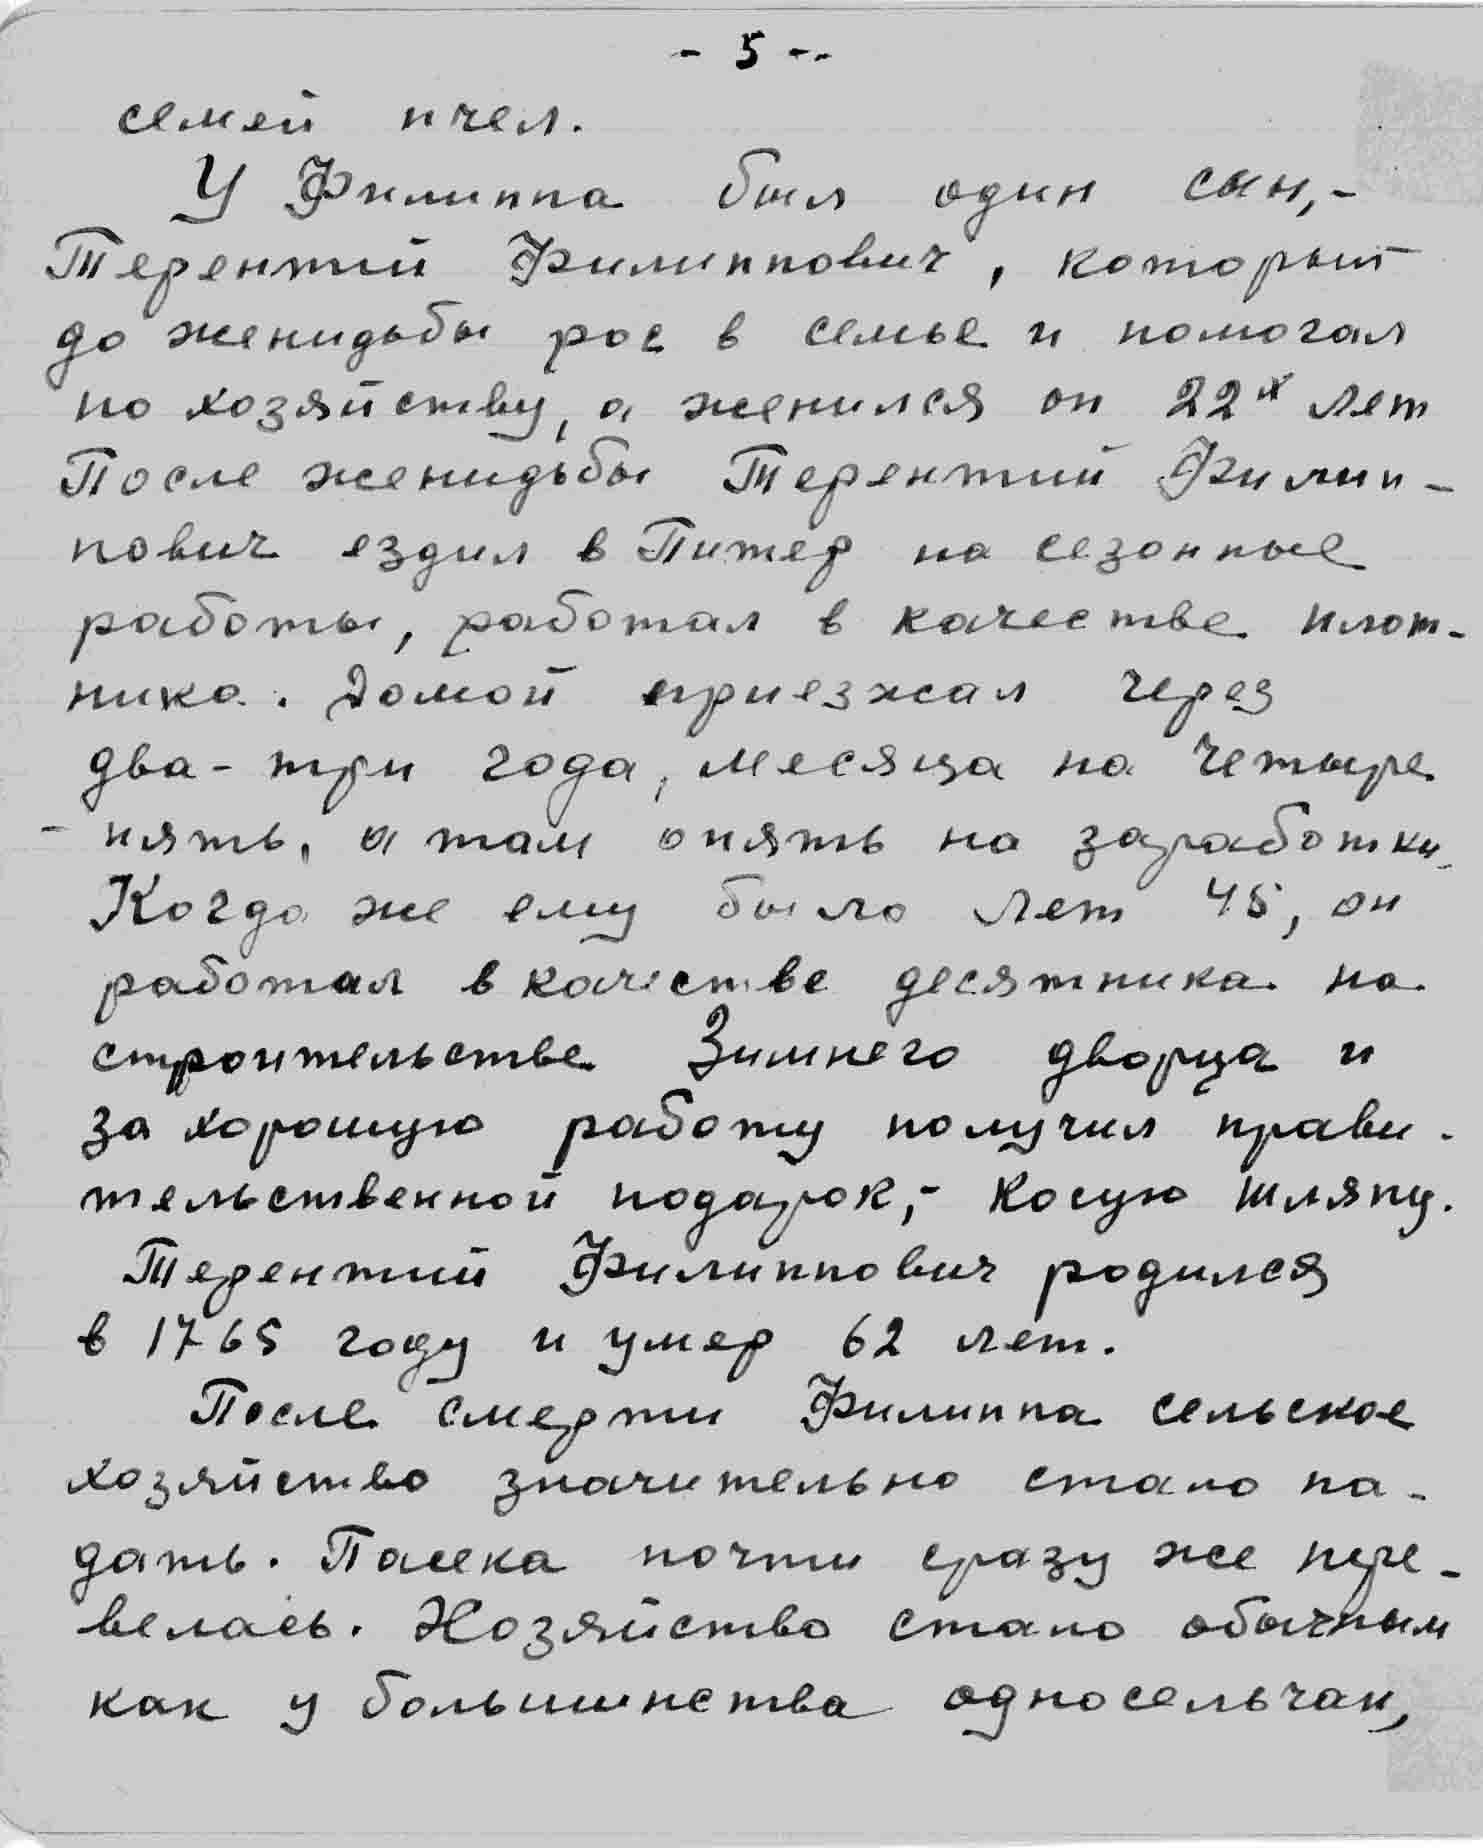 - 5 -
семей пчел.
У Филиппа был один сын,-
Терентий Филиппович, который
до женидьбы рос в семье и помогал
по хозяйству, а женился он 22х лет
После женидьбы Терентий Филип-
пович ездил в Питер на сезонные
работы, работал в качестве плот-
ника. Домой приезжал через
два-три года, месяца на четыре
- пять, а там опять на заработки.
Когда же ему было лет 45, он
работал в качестве десятника на
строительстве Зимнего дворца и
за хорошую работу получил прави-
тельственной подарок,- косую шляпу.
Терентий Филиппович родился
в 1765 году и умер 62 лет.
После смерти Филиппа сельское
хозяйство значительно стало па-
дать. Пасека почти сразу же пере-
велась. Хозяйство стало обычным
как у большинства односельчан,